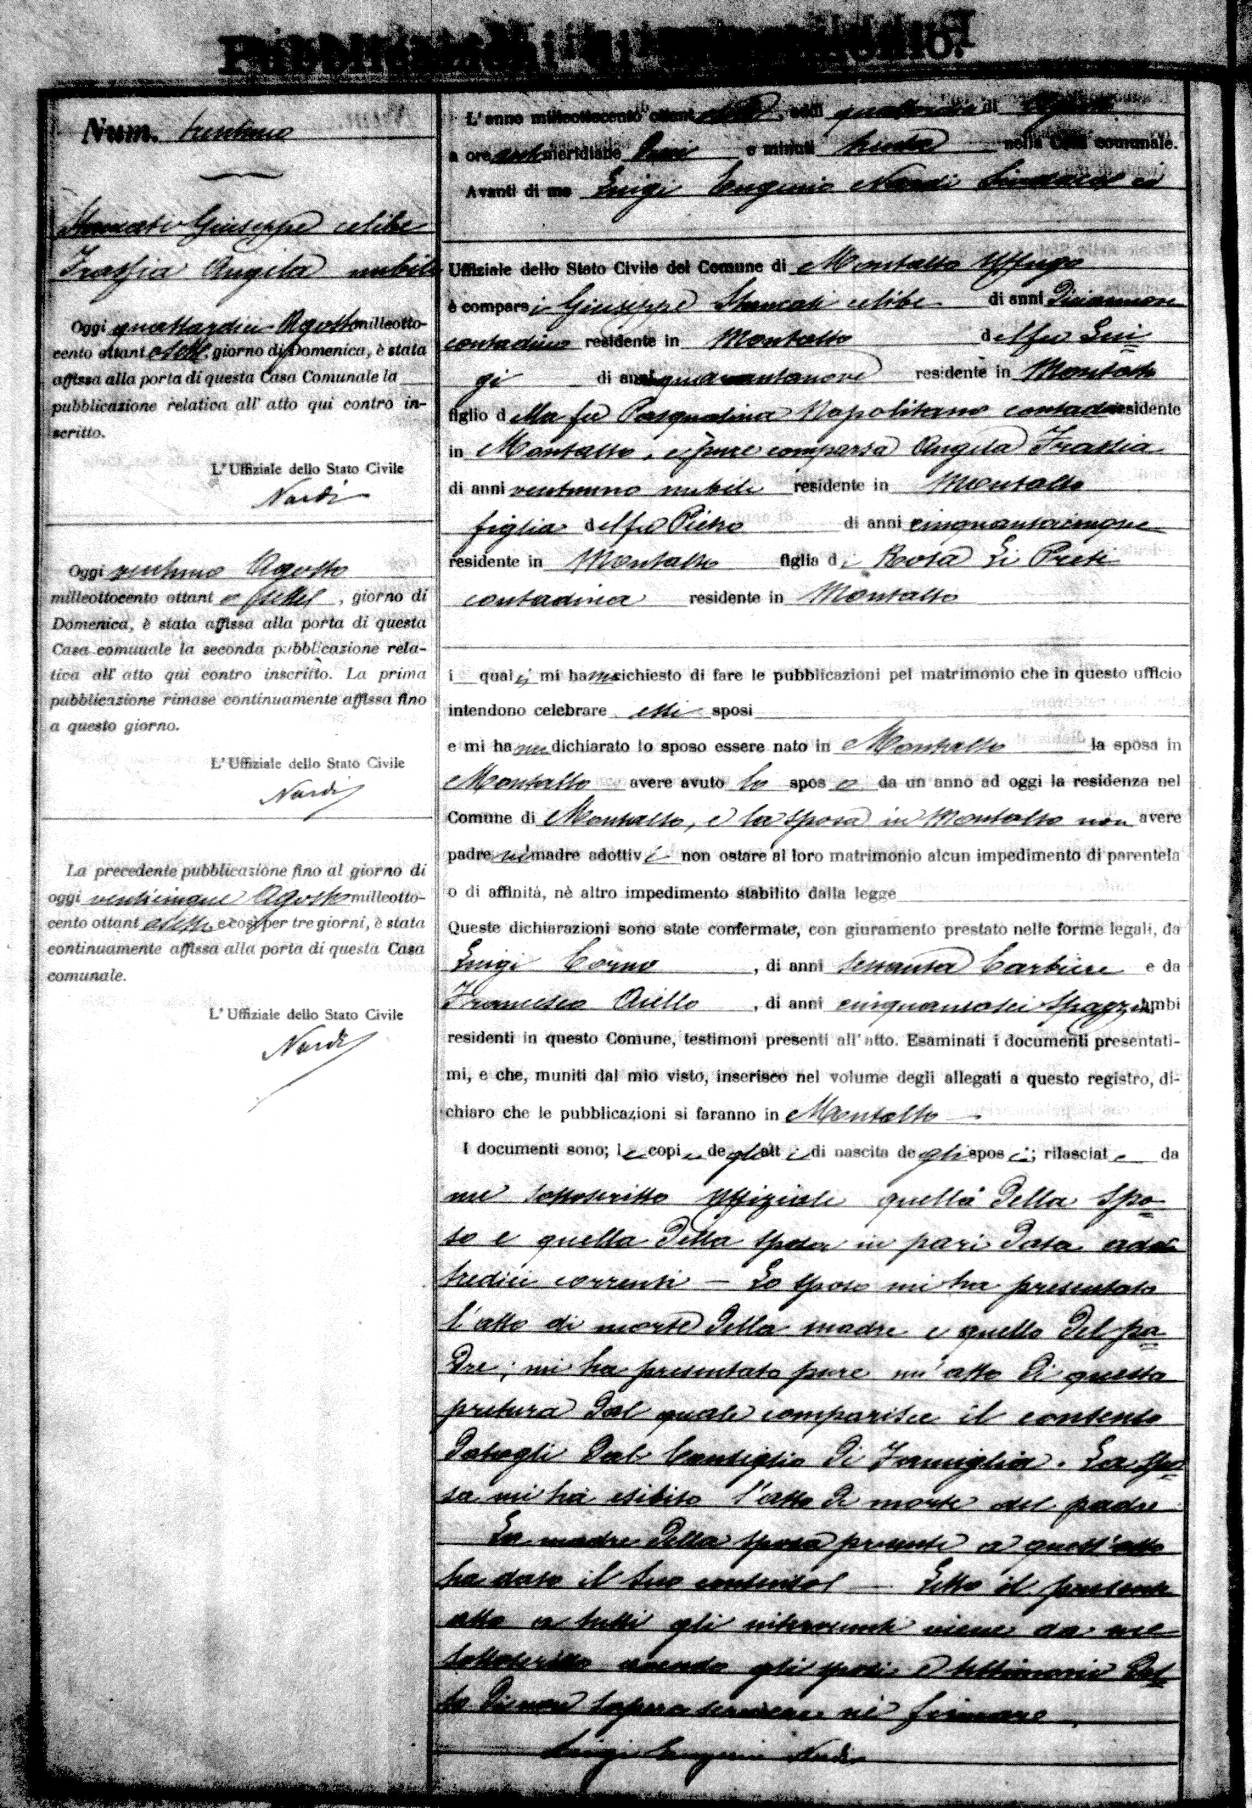 Pubblicazioni di matrimonio.
Num. trentuno
Stancati Giuseppe celibe
Trassia Angela nubile
Oggi quattordici Agosto milleotto-
cento ottant giorno di Domenica, è stata
affissa alla porta di questa Casa Comunale la
pubblicazione relativa all' atto qui contro in-
scritto.
L' Uffiziale dello Stato Civile
Nardi
Oggi ventuno Agosto
milleottocento ottant , giorno di
Domenica, è stata affissa alla porta di questa
Casa comunale la seconda pubblicazione rela-
tiva all' atto qui contro inscritto. La prima
pubblicazione rimase continuamente affissa fino
a questo giorno.
L' Uffiziale dello Stato Civile
Nardi
La precedente pubblicazione fino al giorno di
oggi venticinque Agosto milleotto-
cento ottant e così per tre giorni, è stata
continuamente affissa alla porta di questa Casa
comunale.
L' Uffiziale dello Stato Civile
Nardi
L' anno milleottocento ottant addì quattordici di
a ore meridiane e minuti nella Casa comunale.
Avanti di me Luigi Eugenio Nardi Sindaco ed
Uffiziale dello Stato Civile del Comune di Montalto Uffugo
è compars i Giuseppe Stancati celibe di anni Diciannove
contadino residente in Montalto del fu Lui
gi di anni quarantanove residente in Montalto
figlio d ella fu Pasqualina Napolitano contadina residente
in Montalto, e pure comparsa Angela Trassia
di anni ventuno nubile residente in Montalto
figlia del fu Pietro di anni cinquantacinque
residente in Montalto figlia di Rosa Li Preti
contadina residente in Montalto
i quali mi hanno richiesto di fare le pubblicazioni pel matrimonio che in questo ufficio
intendono celebrare essi sposi
e mi hanno dichiarato lo sposo essere nato in Montalto la sposa in
Montalto avere avuto lo spos o da un anno ad oggi la residenza nel
Comune di Montalto, e la sposa in Montalto non avere
padre nè madre adottiv i non ostare al loro matrimonio alcun impedimento di parentela
o di affinità, nè altro impedimento stabilito dalla legge
Queste dichiarazioni sono state confermate, con giuramento prestato nelle forme legali, da
Luigi Corno , di anni sessanta barbiere e da
Francesco Aiello , di anni cinquantasei ambi
residenti in questo Comune, testimoni presenti all' atto. Esaminati i documenti presentati-
mi, e che, muniti dal mio visto, inserisco nel volume degli allegati a questo registro, di-
chiaro che le pubblicazioni si faranno in Montalto
I documenti sono; le copie degli atti di nascita degli sposi; rilasciate da
me sottoscritto Uffiziale quella dello spo=
so e quella della sposa in pari data addì
tredici corrente — Lo sposo mi ha presentato
l'atto di morte della madre e quello del pa=
dre; mi ha presentato pure un'atto di questa
pretura dal quale comparisce il consenso
datogli dal Consiglio di Famiglia. La spo=
sa mi ha esibito l'atto di morte del padre
La madre della sposa presente a quest'atto
ha dato il suo consenso — Letto il presente
atto a tutti gli intervenuti viene da me
sottoscritto avendo gli sposi e testimoni det=
to di non sapere scrivere nè firmare
Luigi Eugenio Nardi